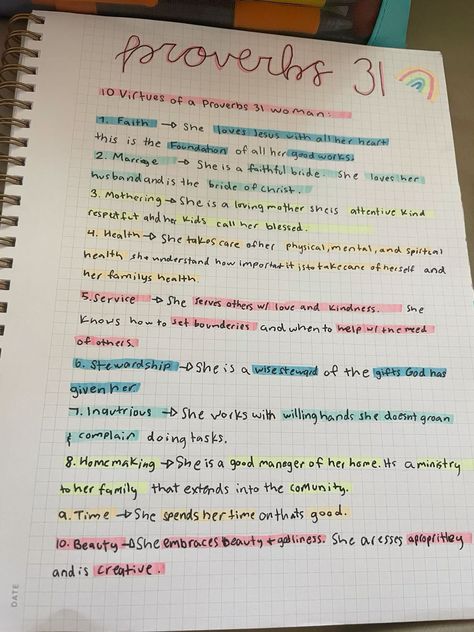 proverbs 31
10 Virtues of a Proverbs 31 woman:
1. Faith → She loves Jesus with all her heart
this is the Foundation of all her good works.
2. Marriage → She is a faithful bride. She loves her
husband and is the bride of christ.
3. Mothering → She is a loving mother she is attentive kind
respectful and her kids call her blessed.
4. Health → She takes care of her physical, mental, and spirtcal
health she understand how important it is to take care of herself and
her familys health.
5. Service → She serves others w/ love and kindness. She
knows how to set bounderies and when to help w/ the need
of others.
6. Stewardship → She is a wise steward of the gifts God has
given her
7. Inautrious → She works with willing hands she doesnt groan
& complain doing tasks.
8. Homemaking → She is a good manager of her home. Its a ministry
to her family that extends into the comunity.
9. Time → She spends her time on thats good.
10. Beauty → She embraces beauty + godliness. She aresses apropritley
and is creative.
DATE